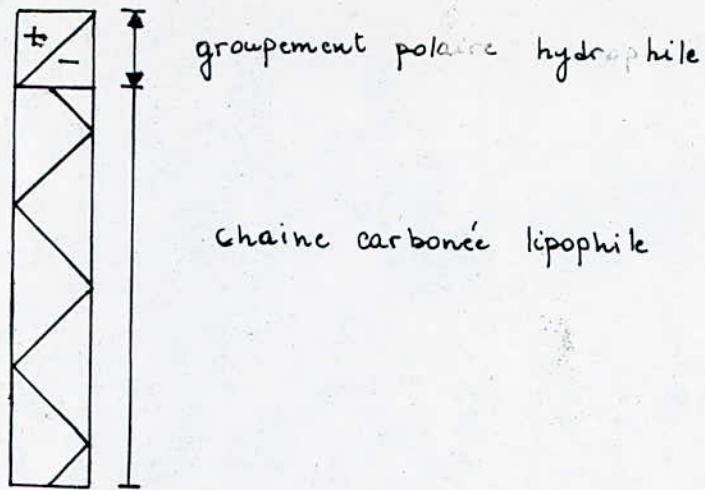 +
-
groupement polaire hydrophile
chaine carbonée lipophile